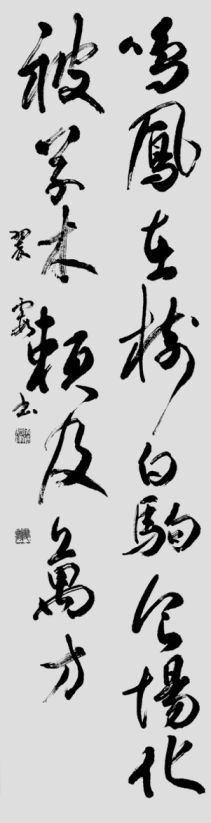 鳴鳳在樹白駒食場化
被草木賴及萬方
翠霞書